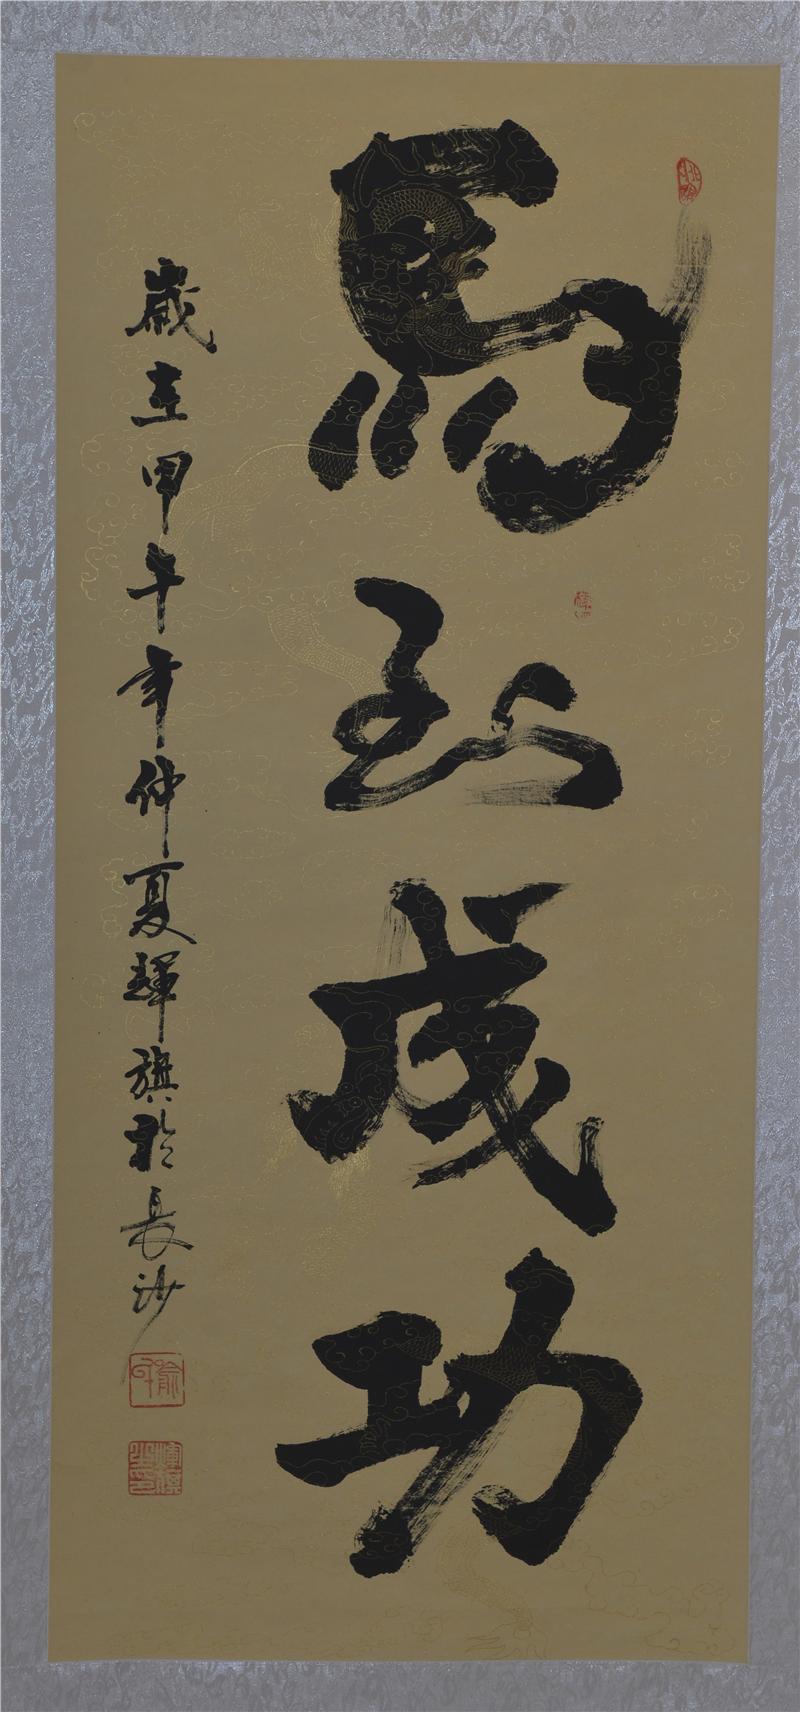 馬到成功
歲在甲午年仲夏輝旗於長沙